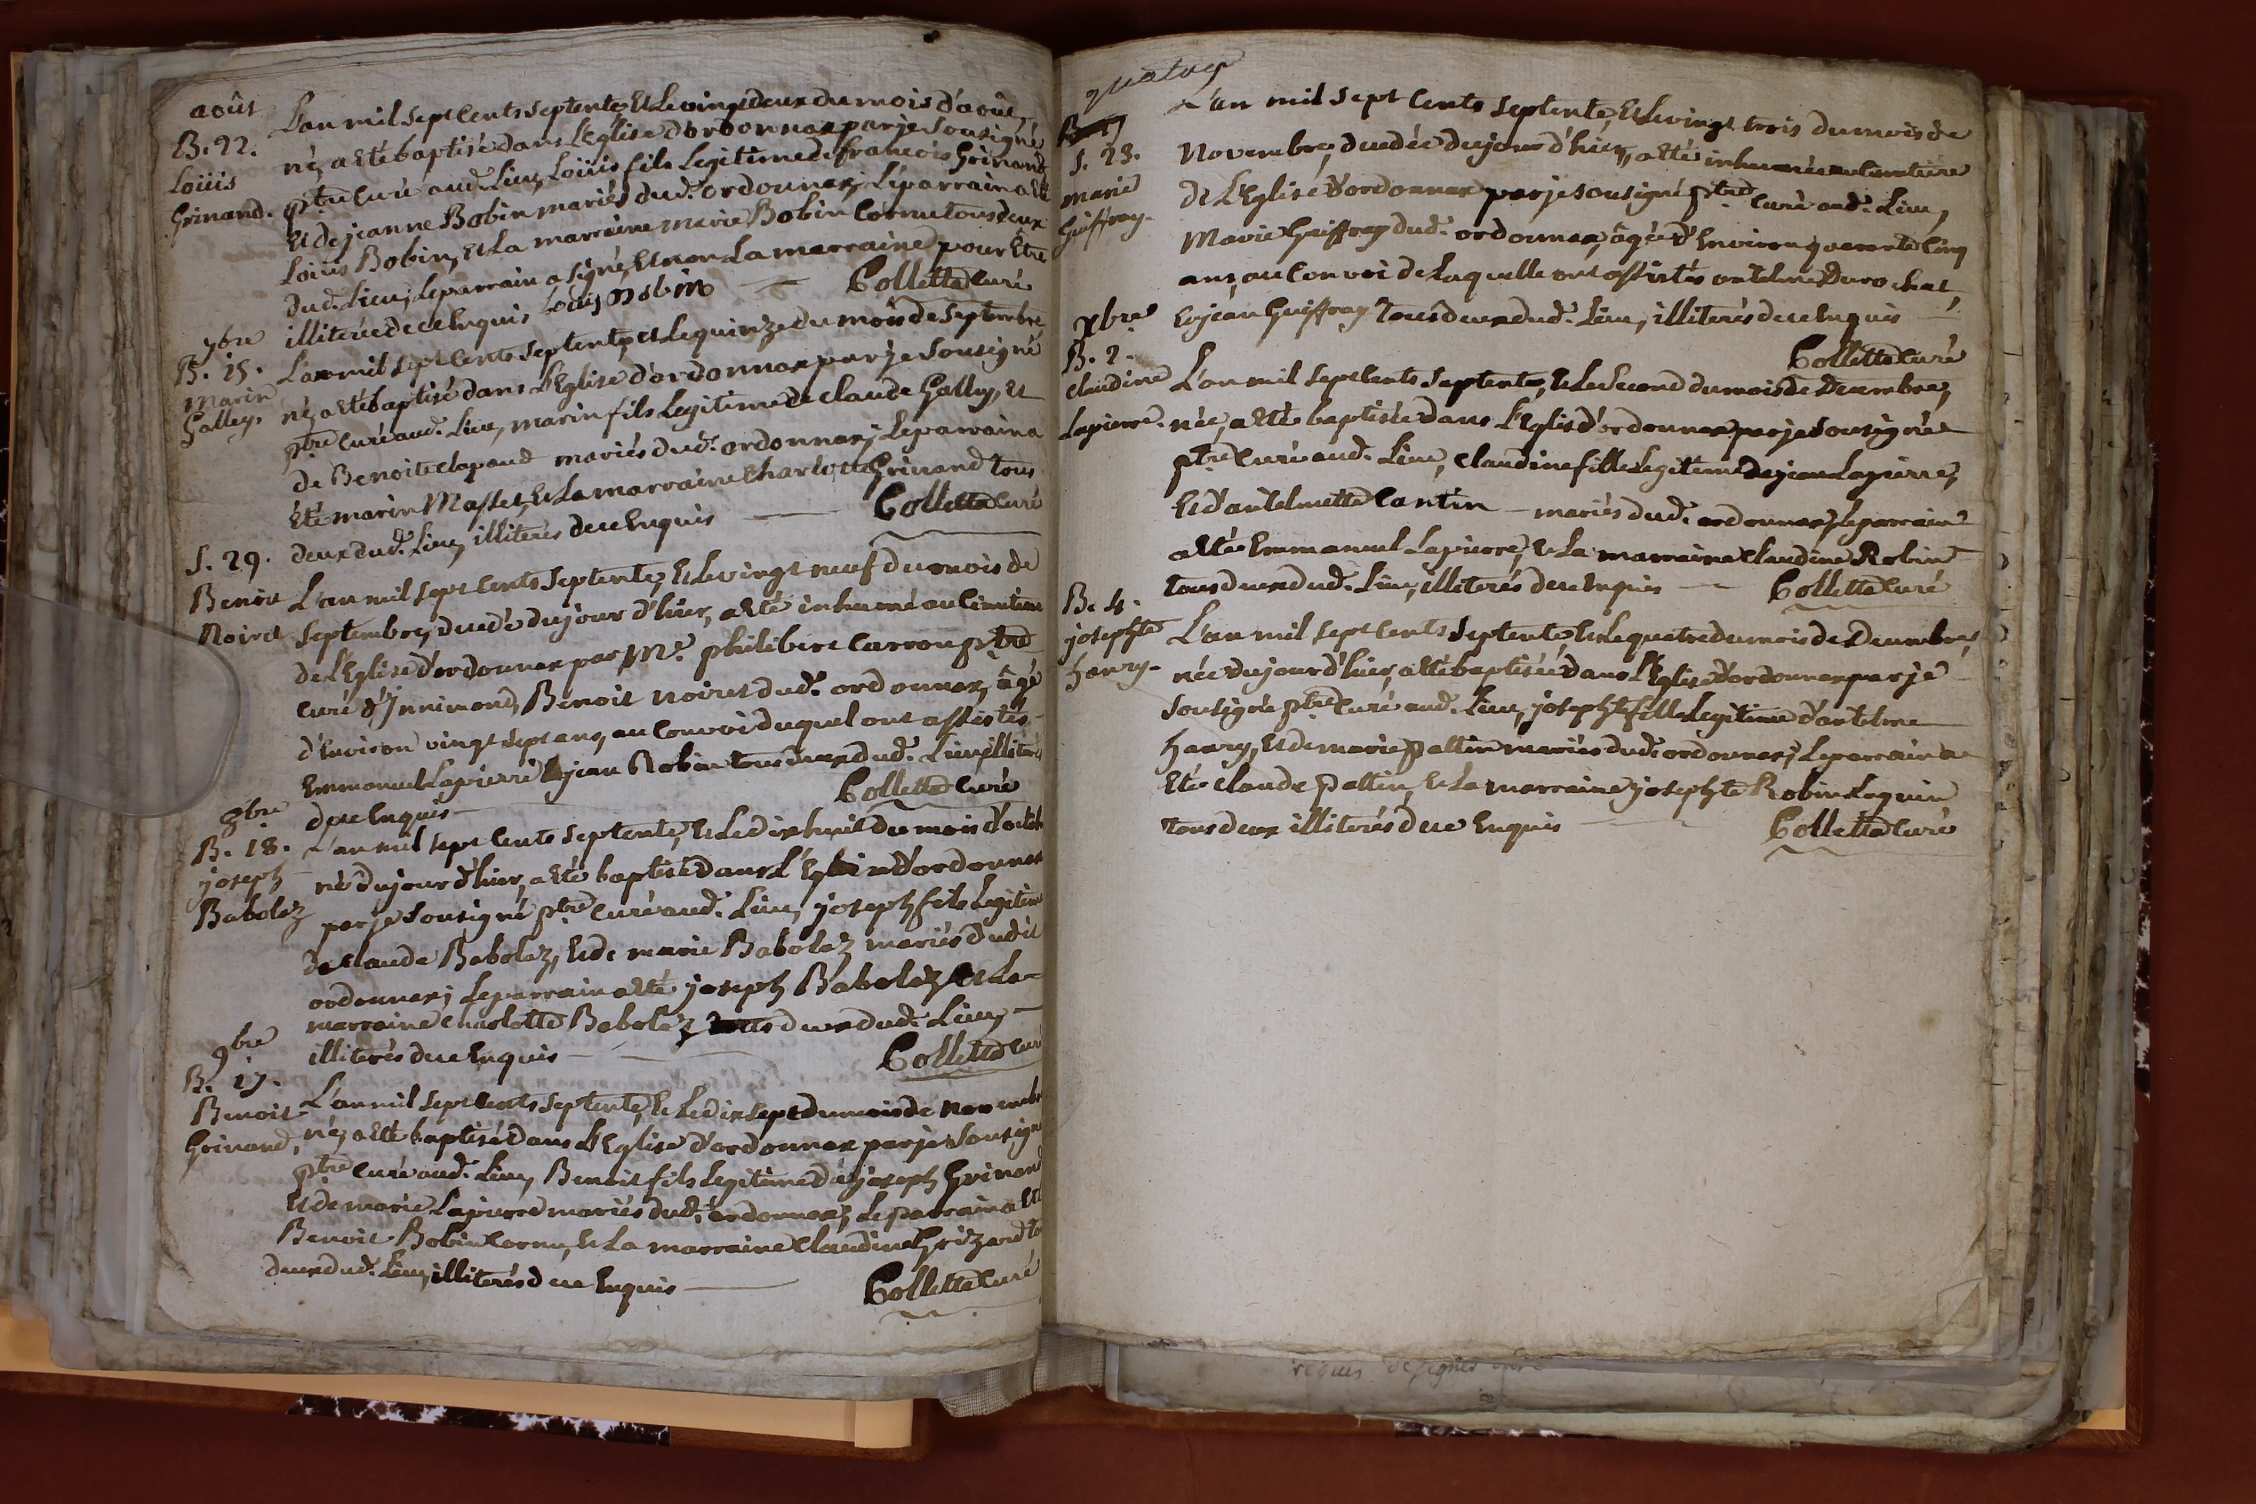 août
B. 22.
Loüis
Grinand.
L'an mil sept cents septente, et le vingt deux du mois d'août,
né, a été baptisé dans l'Eglise d'ordonnax par je sousigné
ptre curé aud. Lieu, Loüis fils Legitime de francois Grinand
et de jeanne Bobin mariés dud. ordonnax; Le parrain a été
Loüis Bobin, et La marraine marie Bobin Cornu tous deux
dud. Lieu, Le parrain a signé, et non La marraine pour être
illiterée de ce enquis Louis Bobin Collette Curé
7bre
B. 15.
marin
Galley.
L'an mil sept cents septente, et Le quinze du mois de Septembre,
né, a été baptisé dans L'Eglise d'ordonnax par je Sousigné
ptre Curé aud. Lieu, marin fils Legitime de claude Galley, et
de Benoite clapaud mariés dud. ordonnax; Le parrain a
été marin Masset, et La marraine Charlotte Grinand tous
deux dud. Lieu, illiterés de ce Enquis Collette Curé
S. 29.
Benoit
Noiret
L'an mil sept cents Septente, et Le vingt neuf du mois de
Septembre, decedé du jour d'hier, a été inhumé au Cimetiere
de L'Eglise d'ordonnax par Mr. philibert Carron ptre
curé d'Innimond, Benoit Noiret dud. ordonnax, âgé
d'Environ vingt sept ans, au Convoi duquel ont assistés
Emmanuel Lapierre Et jean Robin tous deux dud. Lieu illiterés
de ce Enquis Collette Curé
8bre
B. 18.
joseph
Babolez
L'an mil sept cents septente, et Le dix huit du mois d'octob
né du jour d'hier, a été baptisé dans L'Eglise d'ordonnax
par je Sousigné ptre Curé aud. Lieu, joseph fils Legitime
de claude Babolez, et de marie Babolez mariés dudit
ordonnax; Le parrain a été joseph Babolez et La
marraine charlotte Babolez tous deux dud. Lieu,
illiterés de ce Enquis Collette Curé
9bre
B. 17.
Benoit
Grinand,
L'an mil sept Cents Septente, et Le dix sept du mois de Novembre
né, a été baptisé dans L'Eglise d'ordonnax par je Sousigné
ptre Curé aud. Lieu, Benoit fils Legitime de joseph Grinand
et de marie Lapierre mariés dud. ordonnax; Le parrain a été
Benoit Bobin Cornu, et La marraine Claudine Grizard
deux dud. Lieu, illiterés de ce Enquis Collette Curé
quatre
S. 23.
marie
Guiffray.
L'an mil sept cents septente, et Le vingt trois du mois de
Novembre, decedée du jour d'hier, a été inhumée au Cimetiere
de L'Eglise d'ordonnax par je sousigné ptre Curé aud. Lieu,
Marie Guiffray dud. ordonnax, âgée d'Environ quarente cinq
ans, au Convoi de Laquelle ont assistés antelme Durochat,
Et jean Guiffray Tous deux dud. Lieu, illiterés de ce Enquis
Collette Curé
xbre
B. 2.
claudine
Lapierre.
L'an mil sept cents septente, et Le Second du mois de Decembre,
née, a été baptisée dans L'Eglise d'ordonnax par je Sousigné
ptre Curé aud. Lieu, claudine fille Legitime de jean Lapierre,
Et d'antelmette Cantin mariés dud. ordonnax; Le parrain
a été Emmanuel Lapierre, et La marraine claudine Robin
tous deux dud. Lieu, illiterés de ce Enquis Collette Curé
B. 4.
josephte
hanry.
L'an mil sept cents septente, et Le quatre du mois de Decembre,
née du jour d'hier, a été baptisée dans L'Eglise d'ordonnax par je
sousigné ptre Curé aud. Lieu, josephte fille Legitime d'antelme
hanry, et de marie pattin mariés dud. ordonnax; Le parrain a
Eté claude pattin, et La marraine josephte Robin Loquin
tous deux illiterés de ce Enquis Collette Curé